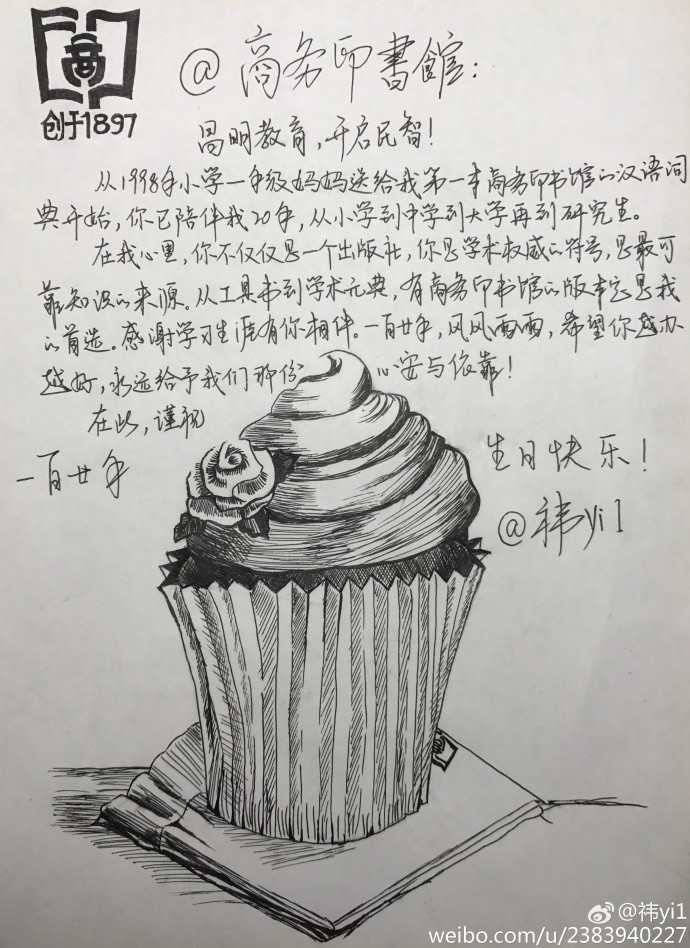 创于1897
@商务印書館：
昌明教育，开启民智！
从1998年小学一年级妈妈送给我第一本商务印书馆的汉语词
典开始，你已陪伴我20年，从小学到中学到大学再到研究生。
在我心里，你不仅仅是一个出版社，你是学术权威的符号，是最可
靠知识的来源。从工具书到学术元典，有商务印书馆的版本定是我
的首选。感谢学习生涯有你相伴。一百廿年，风风雨雨，希望你越办
越好，永远给予我们那份心安与依靠！
在此，谨祝
一百廿年
生日快乐！
@祎yi1
@祎yi1
weibo.com/u/2383940227